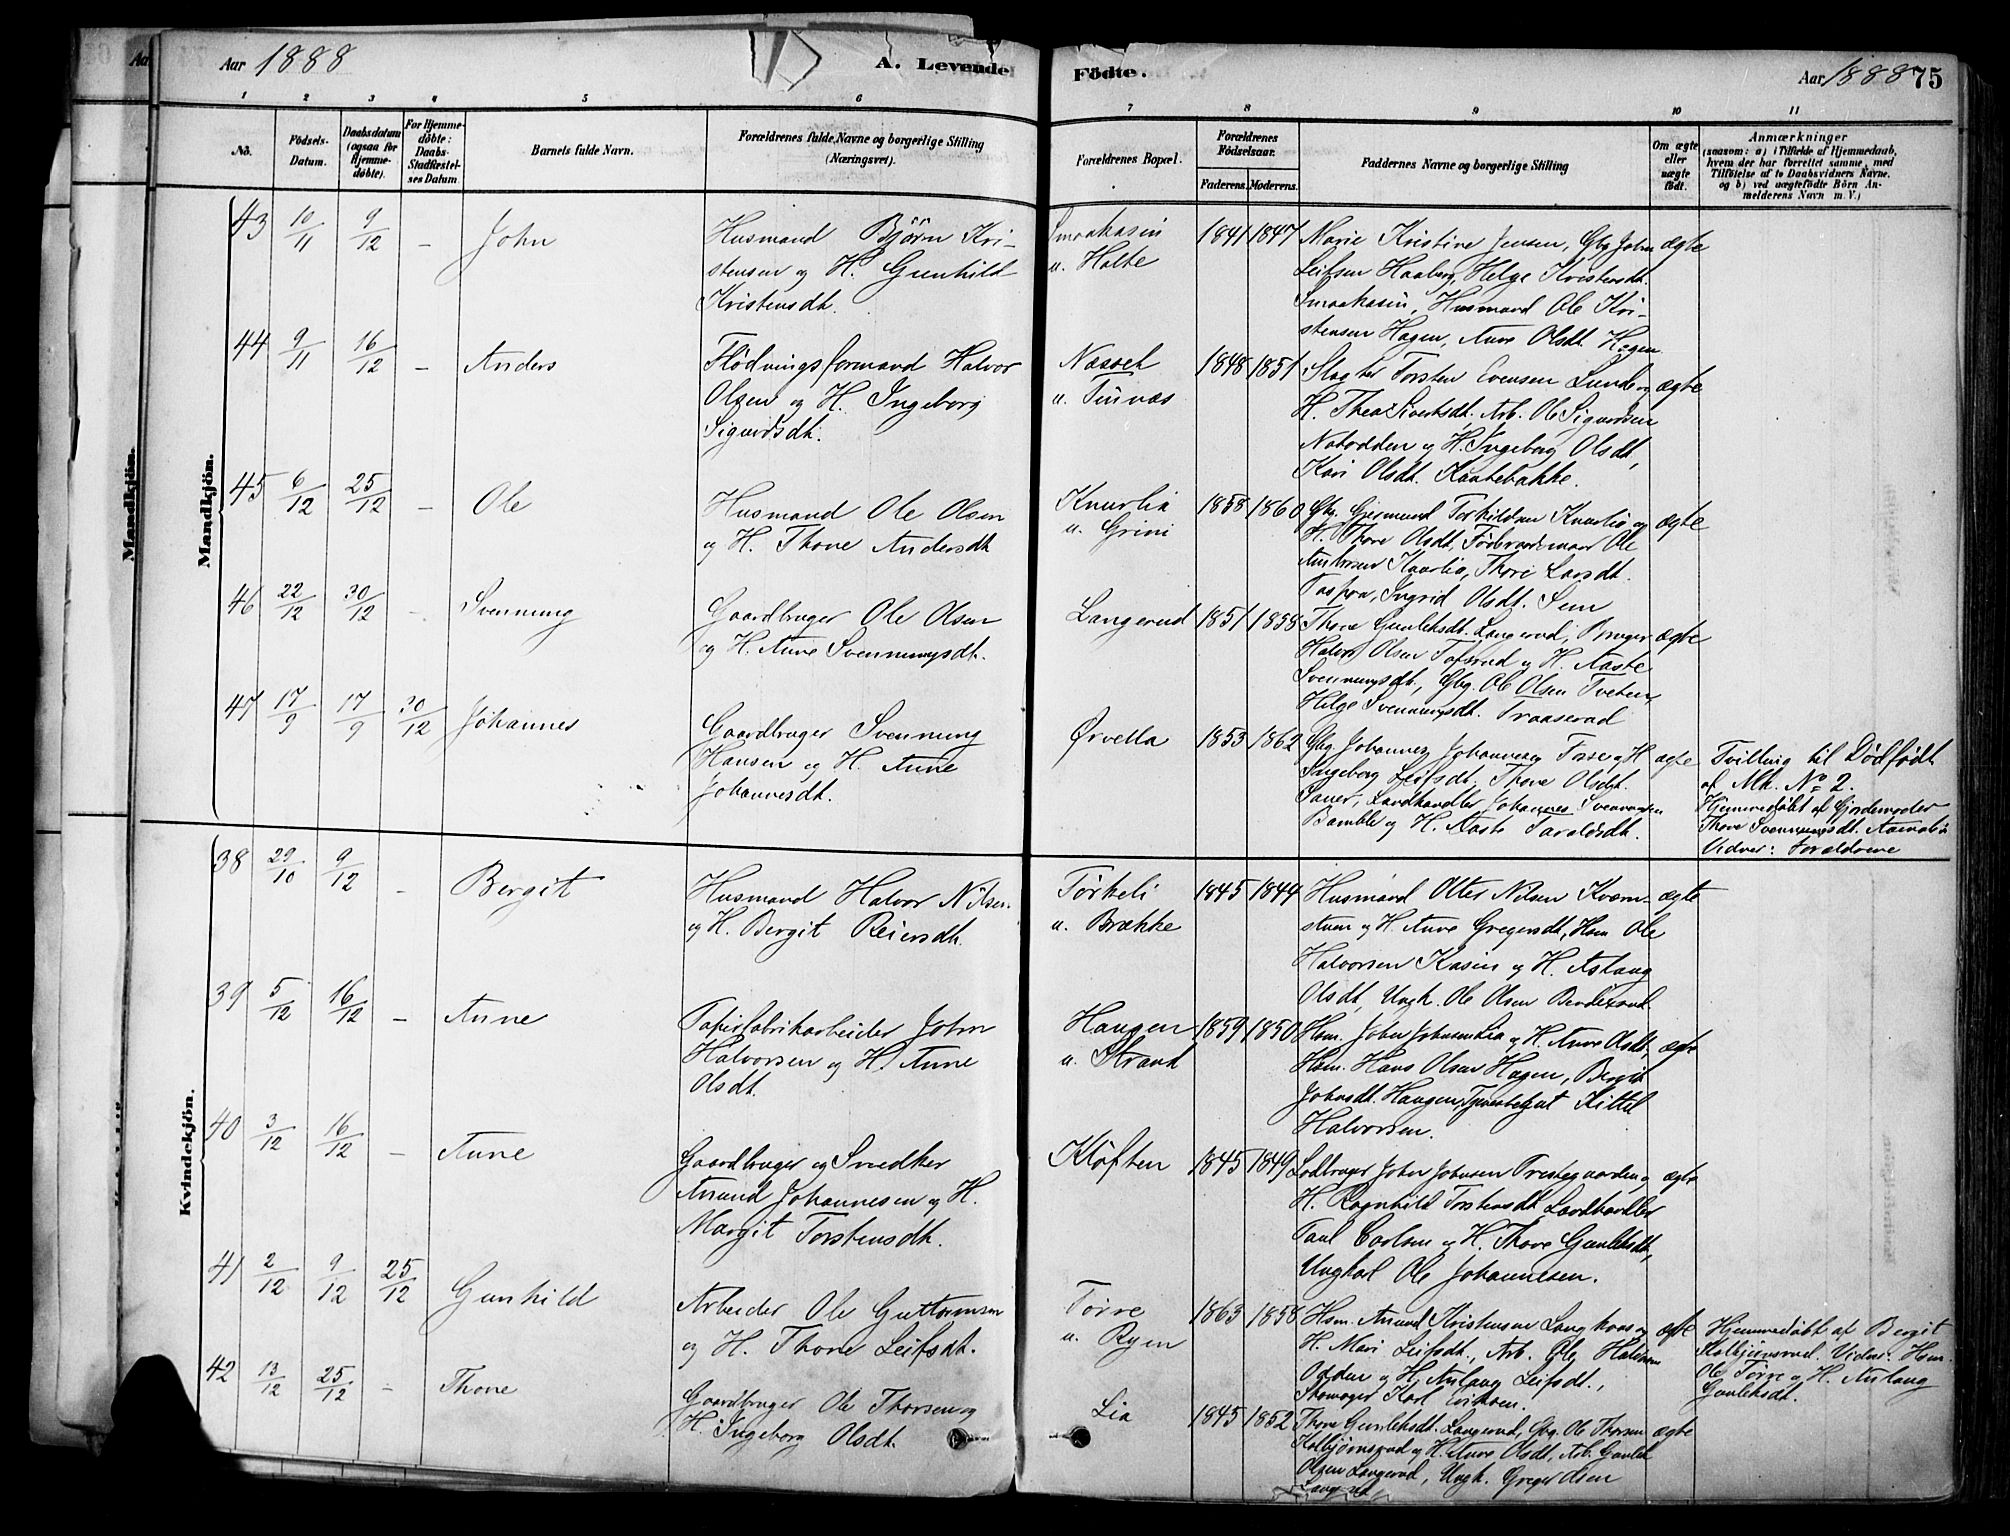 Aar 1888
A. Levende
Födte.
Aar 1888 75
1 2 3 4 5 6 7 8 9 10 11
No.
Födsels-
Datum.
Daabsdatum
(ogsaa for
Hjemme-
döbte).
For Hjemme-
döbte:
Daabs-
Stadfæstel-
ses Datum.
Barnets fulde Navn.
Forældrenes fulde Navne og borgerlige Stilling
(Næringsvei).
Forældrenes Bopæl.
Forældrenes
Födselsaar.
Faderens. Moderens.
Faddernes Navne og borgerlige Stilling
Om ægte
eller
uægte
födt.
Anmærkninger
(saasom: a) i Tilfælde af Hjemmedaab,
hvem der har forrettet samme, med
Tilföielse af to Daabsvidners Navne.
og b) ved uægtefödte Börn An-
melderens Navn m. V.)
Mandkjön.
Mandkjön.
43 10/11 9/12 - John
Husmand Björn Kri-
stensen og H. Gunhild
Kristensdt.
Smaakasin
u. Holte
1841 1847
Marie Kristine Jensen, Gbg John
Leifsen Haaberg, Helge Kristensdt.
Smaakasin, Husmand Ole Kri-
stensen Hagen, Anne Olsdt. Hagen
ægte
44 9/11 16/12 - Anders
Flödningsformand Halvor
Olsen og H. Ingeborg
Sigurdsdt.
Næsset
u. Tinnæs
1848 1851
Slagter Torsten Evensen Lunde og
H. Thea Sivertsdt. Arb. Ole Sigurdsen
Notodden og H. Ingeborg Olsdt,
Kari Olsdt. Kaatebakke.
ægte
45 6/12 25/12 - Ole
Husmand Ole Olsen
og H. Thone Andersdt
Knurlia
u. Grini
1858 1860
Gbg. Gjermund Torkildsen Knurlia og
H. Thone Olsdt, Ole
Andersen Knurlia, Thore Larsdt.
Ingrid Olsdt. Sem
ægte
46 22/12 30/12 - Svennung
Gaardbruger Ole Olsen
og H. Anne Svennungsdt.
Langerud
1851 1858
Thone Gunleksdt. Langerud, Bruger
Halvor Olsen Tofsrud og H. Aaste
Svennungsdt., Gbg. Ole Olsen Tveten,
Helge Svennungsdt. Traaserud
ægte
47 17/9 17/9 30/12 Johannes
Gaardbruger Svennung
Hansen og H. Anne
Johannesdt.
Ørvella
1853 1862
Gbg Johannes Johannesen Fosse og H
Ingeborg Leifsdt. Thone Olsdt.
Sauer, Landhandler Johannes Svennungsen
Bamble og H. Aaste Taraldsdt.
ægte
Tvilling til Dødfødt
af Mk. No 2.
Hjemmedøbt af Gjordemoder
Thone Svennungsdt.
Vidner: Forældrene
Kvindekjön.
38 29/10 9/12 - Bergit
Husmand Halvor Nilsen
og H. Bergit Reiersdt.
Törkeli
u. Brække
1845 1844
Husmand Otter Nilsen Kvern-
stuen og H Anne Gregersdt, Hsm Ole
Halvorsen Kasin og H. Aslaug
Olsdt, Ungk. Ole Olsen Benderud.
ægte
39 5/12 16/12 - Anne
Papirfabrikarbeider John
Halvorsen og H. Anne
Olsdt.
Haugen
u. Strand
1859 1850
Hsm. John Johnsen Lia og H. Anne Olsdt,
Hsm. Hans Olsen Hagen, Bergit
Johnsdt. Haugen, Tjenestegut Kittil
Halvorsen.
ægte
40 3/12 16/12 - Anne
Gaardbruger og Snedker
Amund Johannesen og H.
Margit Torstensdt.
Klöften
1845 1849
Lodbruger John Johnsen Prestegaarden og
H. Ragnhild Torstensdt Landhandler
Paul Carlsen og H. Thone Gunleksdt,
Ungkarl Ole Johannesen.
ægte
41 2/12 9/12 25/12 Gunhild
Arbeider Ole Guttormsen
og H. Thone Leifsdt.
Torve
u. Ryen
1863 1858
Hsm. Amund Kristensen Langkaas og
H. Mari Leifsdt., Arb. Ole
Odden og H. Aslaug Leifsdt.,
Skomager Karl Eriksen.
ægte
Hjemmedøbt af Bergit
Kolbjørnsrud. Vidner: Hsm.
Ole Torve og H. Aslaug
Gunleksdt.
42 13/12 25/12 - Thone
Gaardbruger Ole Thorsen og
H. Ingeborg Olsdt.
Lia
1845 1852
Thone Gunleksdt. Langerud, Gbg. Ole Thorsen
Kolbjørnsrud og H. Anne Olsdt, Arb. Gunlek
Olsen Langerud, Ungk. Greger Olsen
Langerud
ægte